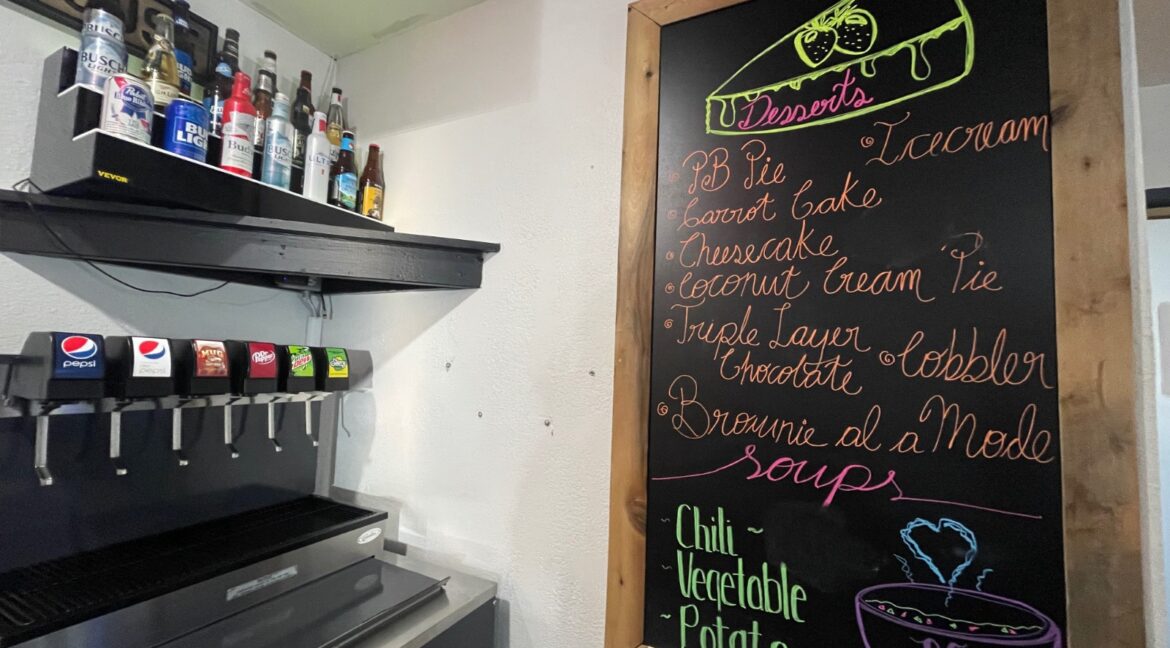 BUSCH
LIGHT
Pabst
Blue Ribbon
BUD
LIGHT
Bud
BUSCH
ULTRA
VEVOR
pepsi
pepsi
MUG
Dr Pepper
Desserts
Icecream
PB Pie
Carrot Cake
Cheesecake
Coconut Cream Pie
Triple Layer
Chocolate
Cobbler
Brownie al a Mode
Soups
Chili ~
~ Vegetable
~ Potato